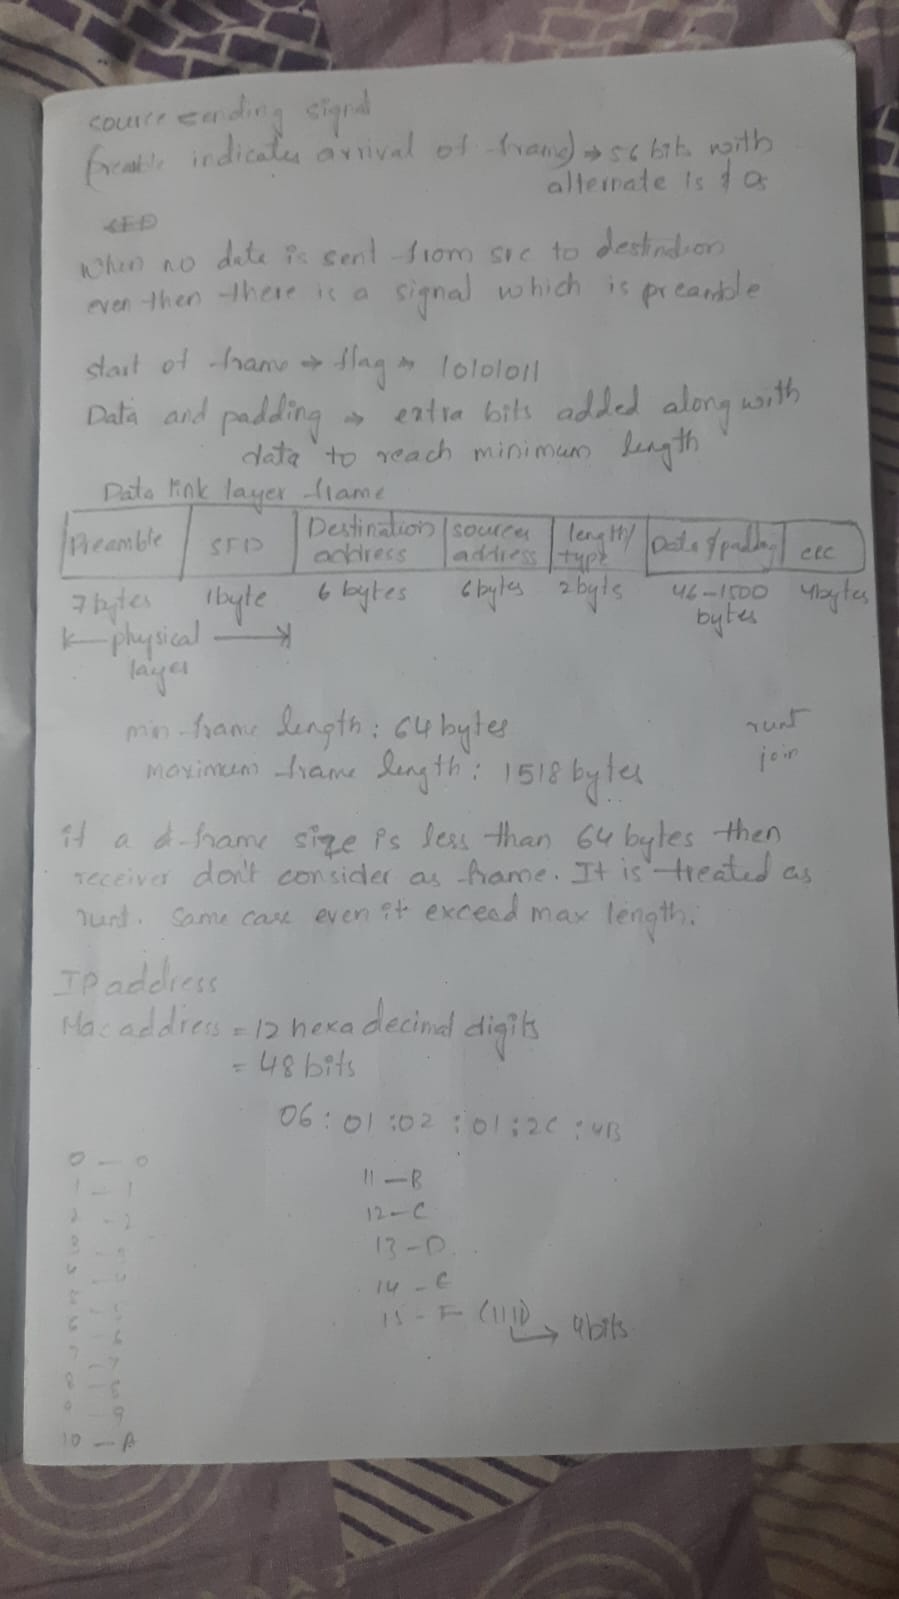 source sending signal
Preamble indicates arrival of frame) → 56 bits with
alternate 1s & 0s
SFD
When no data is sent from src to destination
even then there is a signal which is preamble
start of frame → flag → 10101011
Data and padding → extra bits added along with
data to reach minimum length
Data link layer frame
Preamble | SFD | Destination address | sources address | length/type | Data & padding | CRC
7 bytes 1 byte 6 bytes 6 bytes 2 byte 46-1500 bytes 4 bytes
physical layer
min frame length : 64 bytes
runt
maximum frame length : 1518 bytes
join
if a frame size is less than 64 bytes then
receiver don't consider as frame. It is treated as
runt. Same case even if exceed max length.
IP address
Mac address = 12 hexa decimal digits
= 48 bits
06 : 01 : 02 : 01 : 2C : 4B
0 - 0
1 - 1
2 - 2
3 - 3
4 - 4
5 - 5
6 - 6
7 - 7
8 - 8
9 - 9
10 - A
11 - B
12 - C
13 - D
14 - E
15 - F (1111) → 4bits